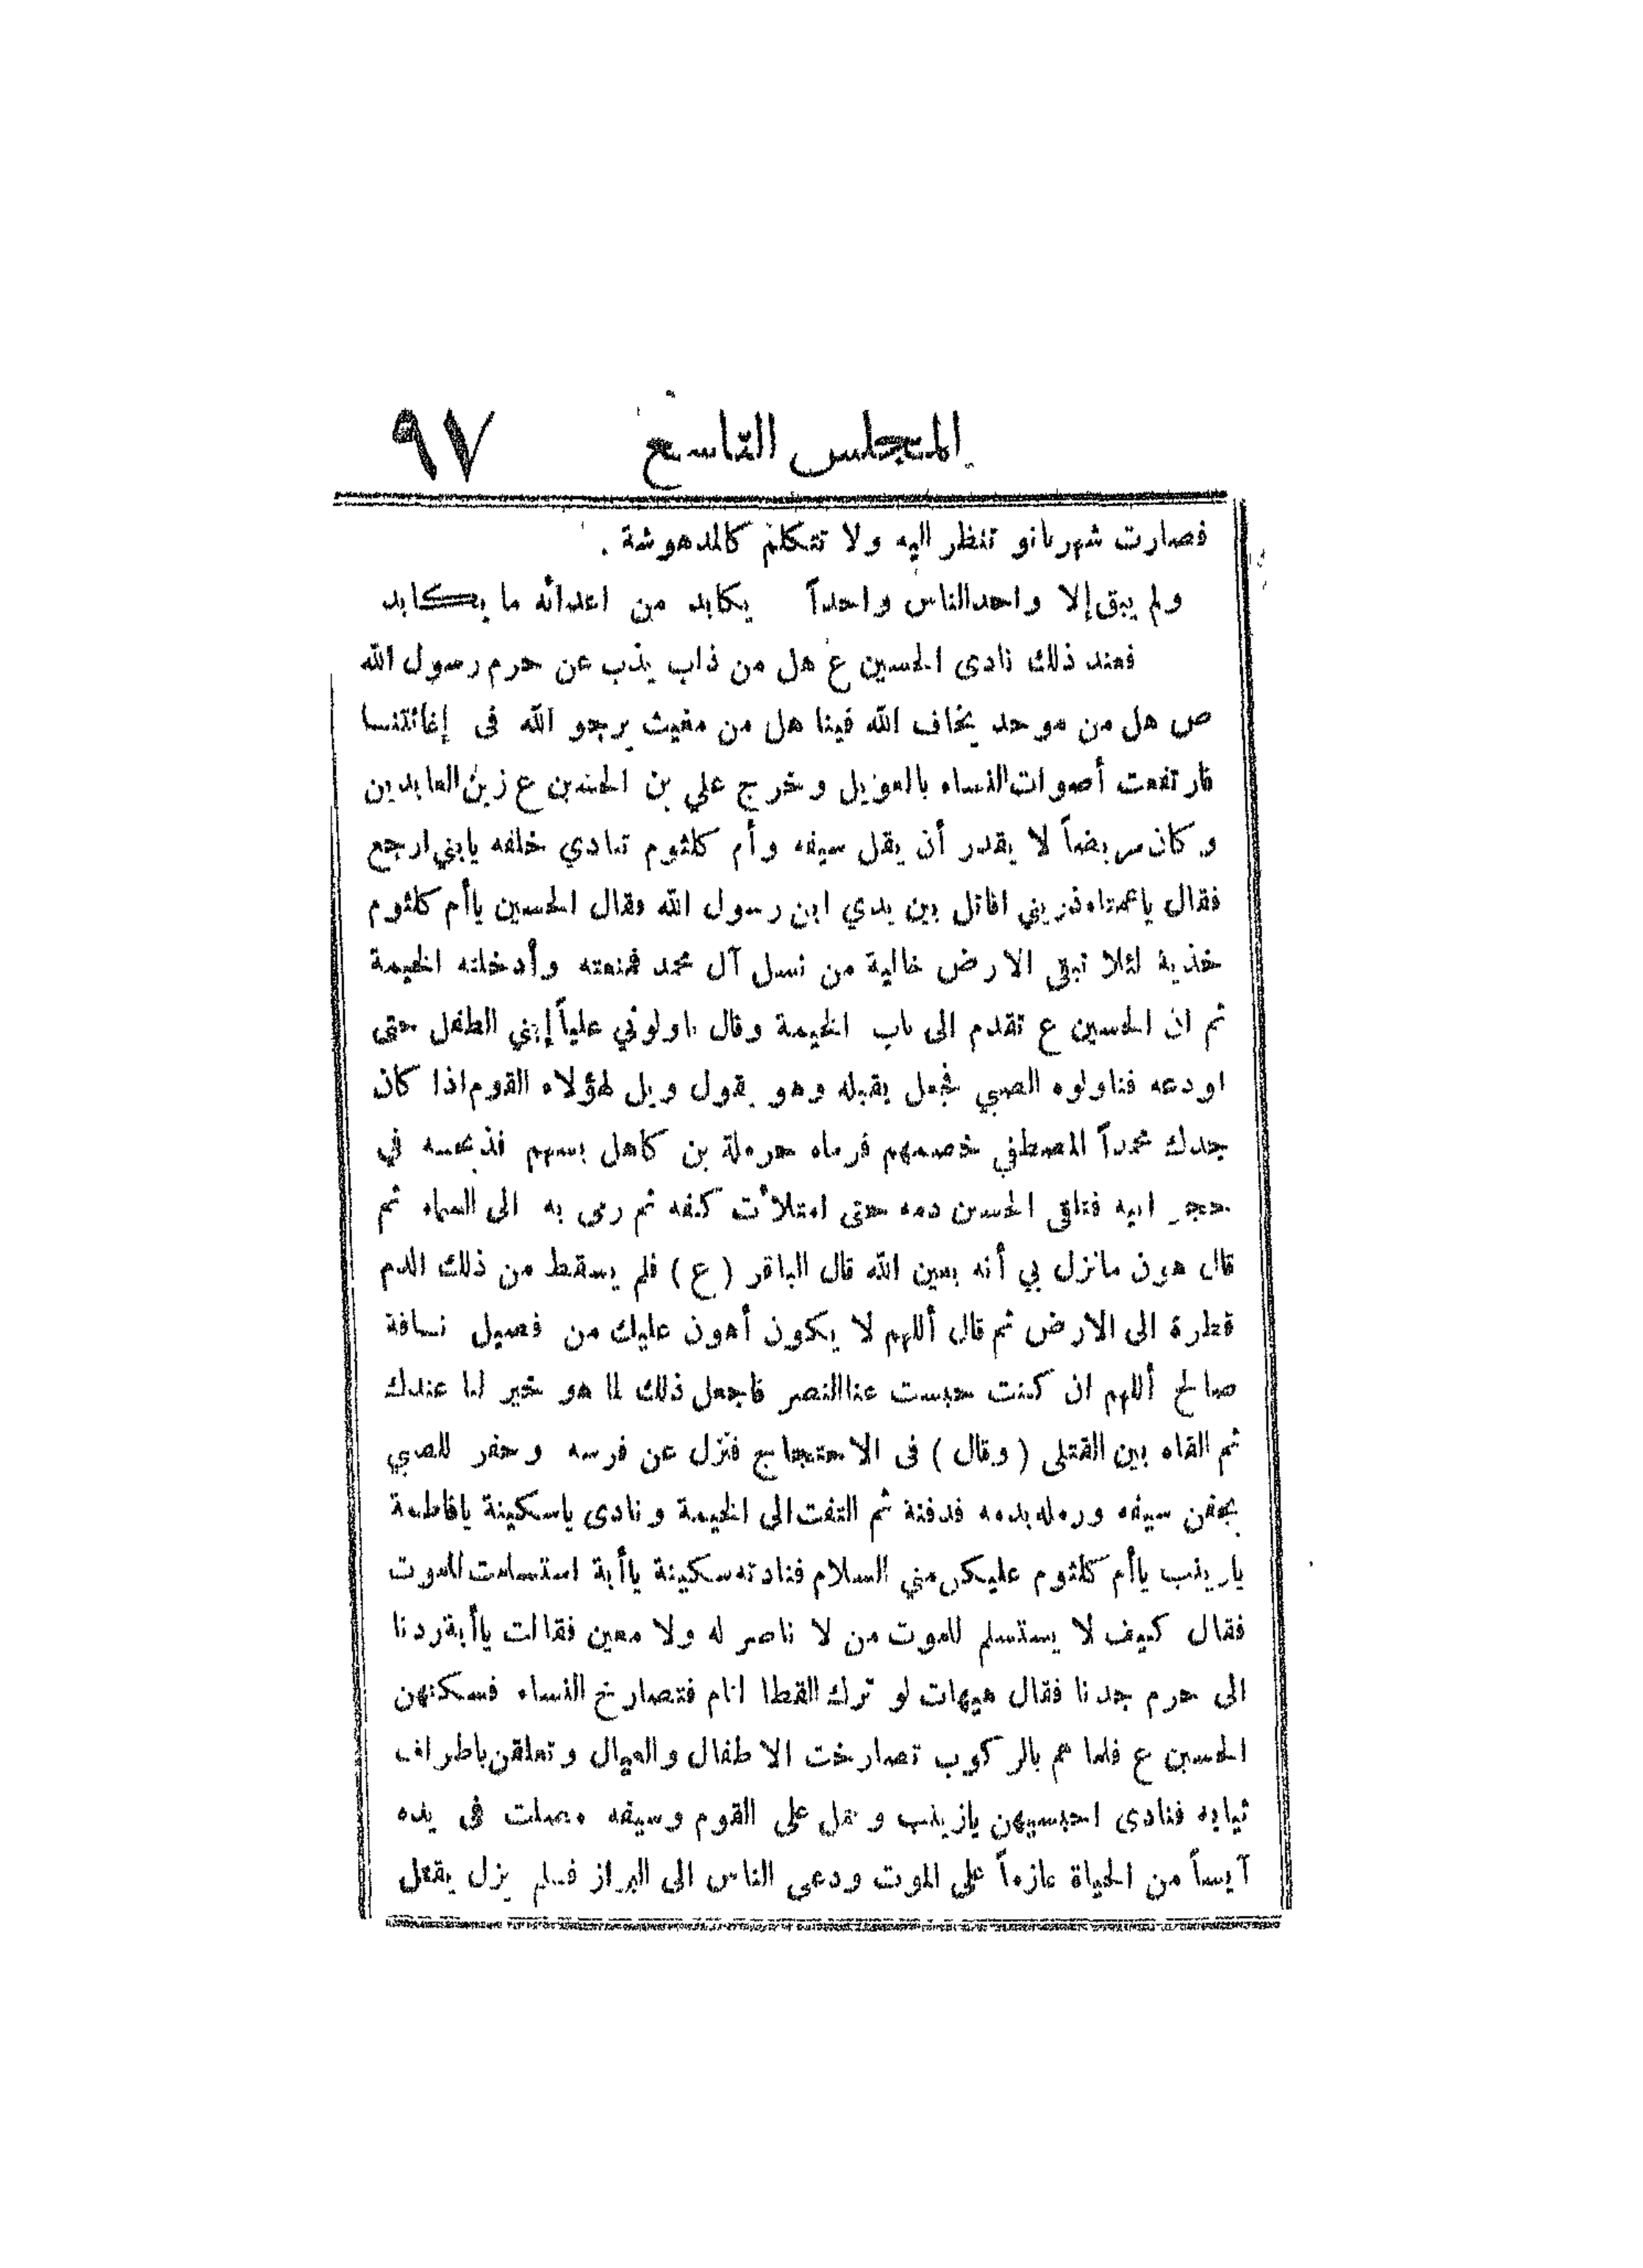 المجلس التاسع ٩٧
فصارت شهربانو تنظر اليه ولا تتكلم كالمدهوشة .
ولم يبق إلا واحد الناس واحداً يكابد من اعدائه ما يكابد
فعند ذلك نادى الحسين ع هل من ذاب يذب عن حرم رسول الله
ص هل من موحد يخاف الله فينا هل من مغيث يرجو الله فى إغاثتنا
فارتفعت أصوات النساء بالعويل وخرج علي بن الحسين ع زين العابدين
وكان مريضاً لا يقدر أن يقل سيفه وأم كلثوم تنادي خلفه يابني ارجع
فقال ياعمتاه ذريني اقاتل بين يدي ابن رسول الله فقال الحسين ياأم كلثوم
خذيه لئلا تبقى الارض خالية من نسل آل محمد فمنعته وأدخلته الخيمة
ثم ان الحسين ع تقدم الى باب الخيمة وقال ناولوني علياً إبني الطفل حتى
اودعه فناولوه الصبي فجعل يقبله وهو يقول ويل لهؤلاء القوم اذا كان
جدك محمداً المصطفى خصمهم فرماه حرملة بن كاهل بسهم فذبحه في
حجر ابيه فتلقى الحسين دمه حتى امتلأت كفه ثم رمى به الى السماء ثم
قال هون مانزل بي أنه بعين الله قال الباقر ( ع ) فلم يسقط من ذلك الدم
قطرة الى الارض ثم قال أللهم لا يكون أهون عليك من فصيل ناقة
صالح أللهم ان كنت حبست عنا النصر فاجعل ذلك لما هو خير لنا عندك
ثم القاه بين القتلى ( وقال ) فى الاحتجاج فنزل عن فرسه وحفر للصبي
بجفن سيفه ورمله بدمه فدفنة ثم التفت الى الخيمة ونادى ياسكينة يافاطمة
يازينب ياأم كلثوم عليكن مني السلام فنادته سكينة ياأبة استسلمت للموت
فقال كيف لا يستسلم للموت من لا ناصر له ولا معين فقالت ياأبة ردنا
الى حرم جدنا فقال هيهات لو ترك القطا لنام فتصارخ النساء فسكتهن
الحسين ع فلما هم بالركوب تصارخت الاطفال والعيال وتعلقن باطراف
ثيابه فنادى احبسيهن يازينب وحمل على القوم وسيفه مصلت فى يده
آيساً من الحياة عازماً على الموت ودعى الناس الى البراز فلم يزل يقتل